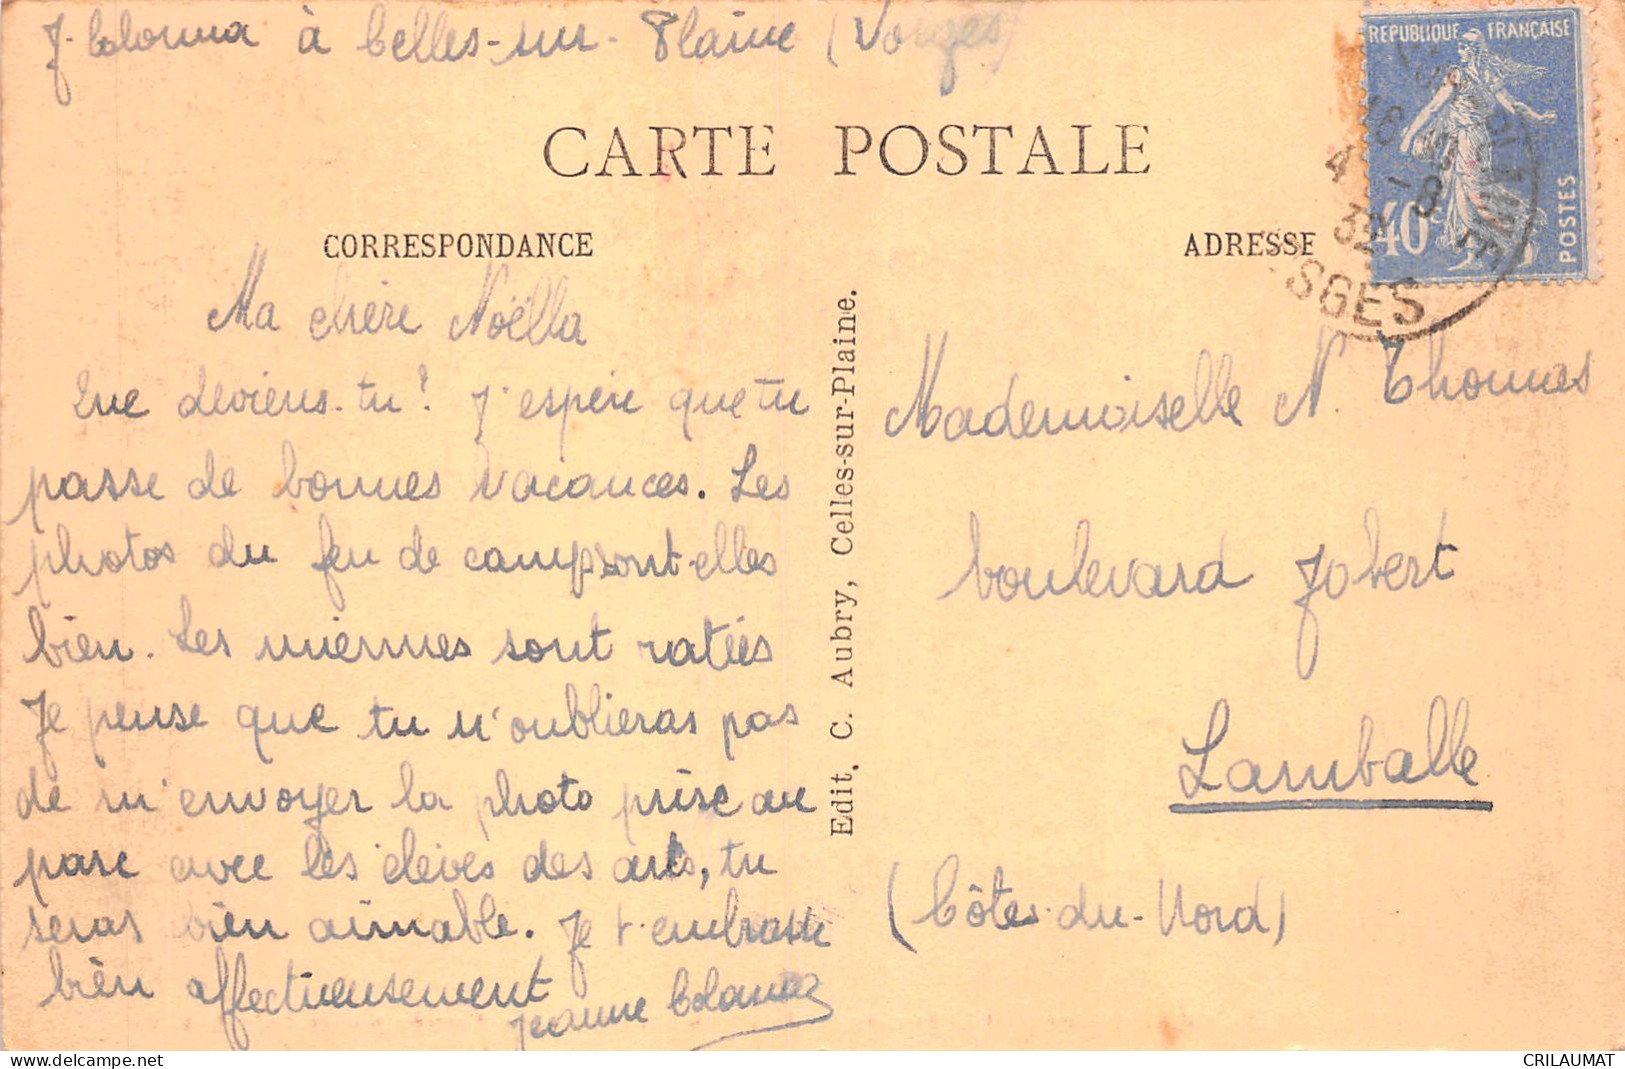 J. Colonna à Celles-sur-Plaine (Vosges)
RÉPUBLIQUE FRANÇAISE
40c
POSTES
16
4 -8
32
SGES
CARTE POSTALE
CORRESPONDANCE
ADRESSE
Ma chère Noëlla
Que deviens-tu? J'espère que tu
passe de bonnes vacances. Les
photos du feu de camp sont-elles
bien. Les miennes sont ratées
Je pense que tu n'oublieras pas
de m'envoyer la photo prise au
parc avec les élèves des arts, tu
seras bien aimable. Je t'embrasse
bien affectueusement
Jeanne Colonna
Edit. C. Aubry, Celles-sur-Plaine.
Mademoiselle N. Thomas
boulevard Jobert
Lamballe
(Côtes-du-Nord)
delcampe.net
CRILAUMAT